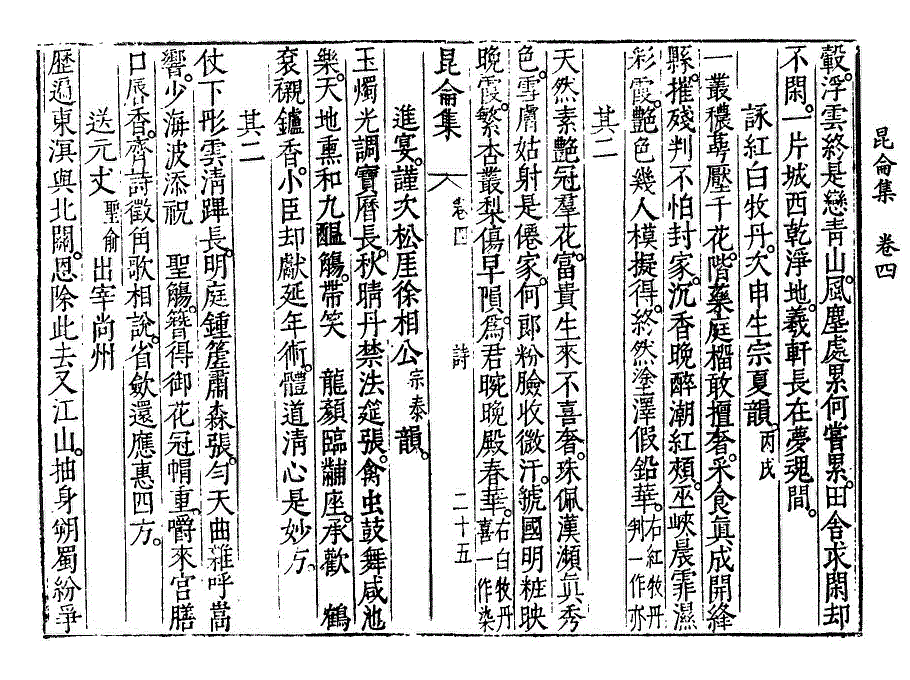 昆侖集　卷四
轂。浮雲終是戀靑山。風塵處累何嘗累。田舍求閑却
不閑。一片城西乾淨地。羲軒長在夢魂間。
詠紅白牧丹。次申生宗夏韻。丙戌
一叢穠萼壓千花。階藥庭榴敢擅奢。采食眞成開絳
縣。摧殘判不怕封家。沉香晩醉潮紅頰。巫峽晨霏濕
彩霞。艶色幾人模擬得。終然塗澤假鉛華。右紅牧丹判一作亦
其二
天然素艶冠羣花。富貴生來不喜奢。珠佩漢濱眞秀
色。雪膚姑射是僊家。何郞粉臉收微汗。虢國明粧映
晩霞。繁杏叢梨傷早隕。爲君晼晩殿春華。右白牧丹喜一作染
昆侖集　卷四　詩　二十五
進宴。謹次松厓徐相公宗泰韻。
玉燭光調寶曆長。秋晴丹禁法筵張。禽虫鼓舞咸池
樂。天地熏和九醞觴。帶笑　龍顔臨黼座。承歡　鶴
袞襯鑪香。小臣却獻延年術。體道淸心是妙方。
其二
仗下彤雲淸蹕長。明庭鍾簴肅森張。勻天曲雜呼嵩
響。少海波添祝　聖觴。簪得御花冠帽重。嚼來宮膳
口唇香。齊詩徵角歌相說。省歛還應惠四方。
送元丈聖俞出宰尙州
歷遍東溟與北關。恩除此去又江山。抽身朔蜀紛爭